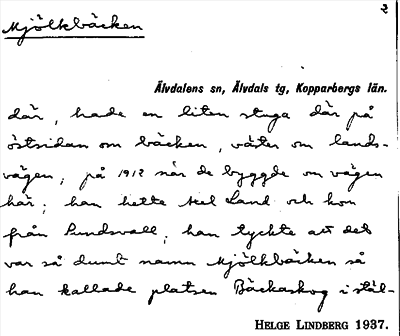 2
Mjölkbäcken
Älvdalens sn, Älvdals tg, Kopparbergs län.
där, hade en liten stuga där på
östsidan om bäcken, väster om lands-
vägen; på 1912 när de byggde om vägen
här; han hette Axel Lund och kom
från Sundsvall; han tyckte att det
var så dumt namn Mjölkbäcken så
han kallade platsen Bäckaskog i stäl-
HELGE LINDBERG 1937.